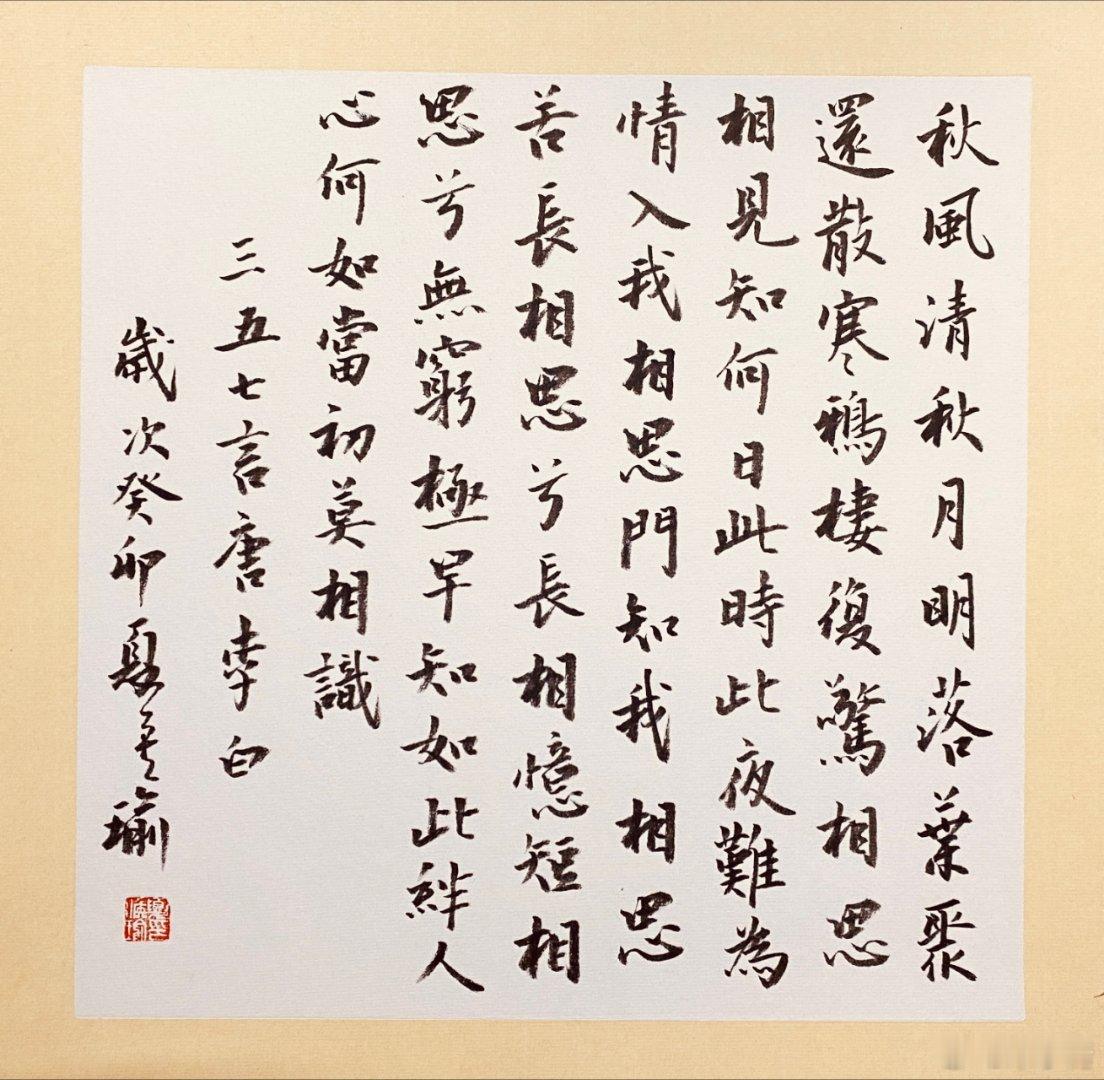 秋風清秋月明落葉聚
還散寒鴉棲復驚相思
相見知何日此時此夜難為
情入我相思門知我相思
苦長相思兮長相憶短相
思兮無窮極早知如此絆人
心何如當初莫相識
三五七言唐李白
歲次癸卯夏瑜